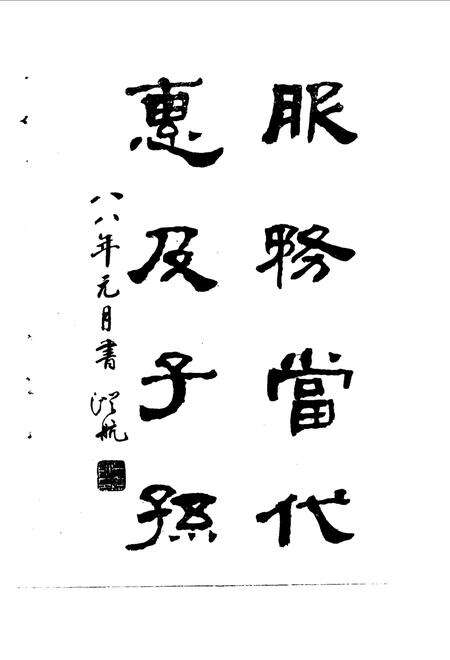 服務當代
惠及子孫
八八年元月書 航